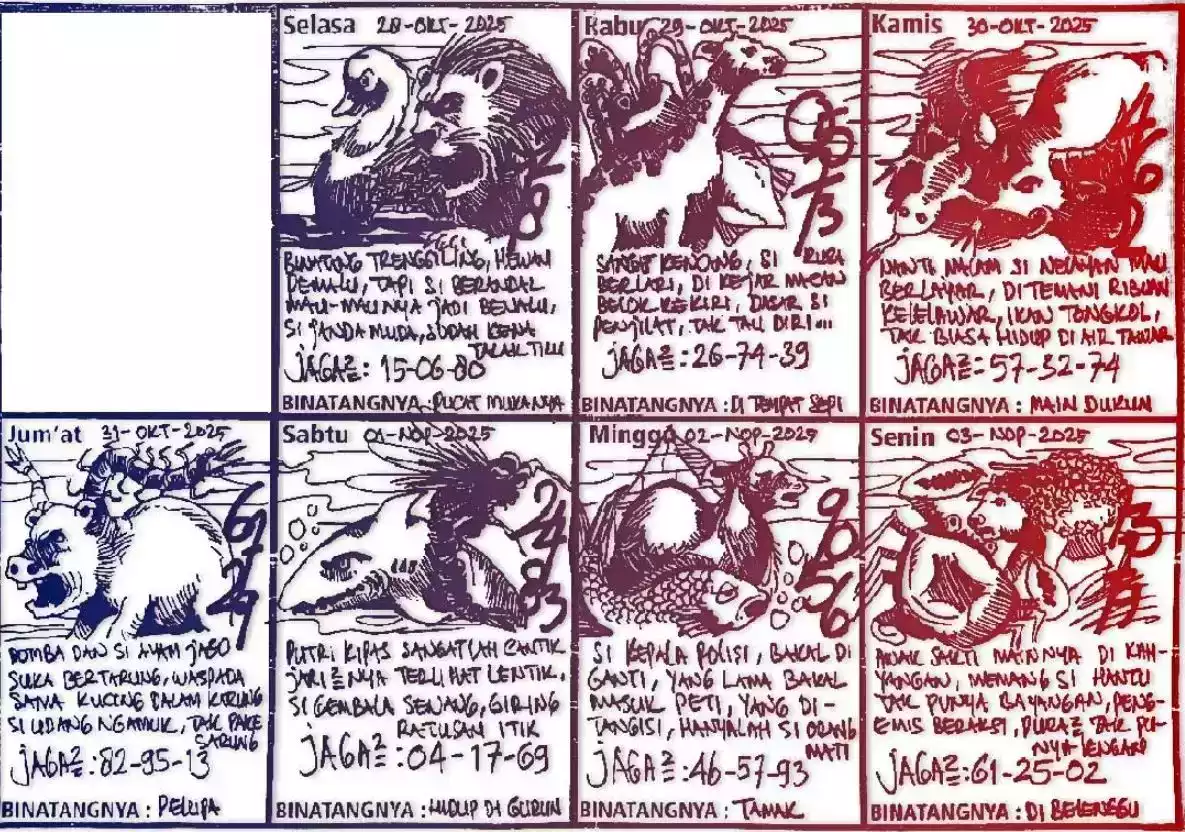 Selasa 28-OKT-2025
BINATANG TRENGGILING, HEWAN
PEMALU, TAPI SI BERANDAL
MAU-MAUNYA JADI BENALU,
SI JANDA MUDA, SUDAH KENA
JAGA2=: 15-06-80
BINATANGNYA : PUCAT MUKANYA
Rabu 29-OKT-2025
SANGAT KENCANG, SI RUSA
BERLARI, DI KEJAR MACAN
BELOK KEKIRI, DASAR SI
PENJILAT, TAK TAU DIRI...
JAGA2=: 26-74-39
BINATANGNYA : DI TEMPAT SEPI
Kamis 30-OKT-2025
NANTI MALAM SI NELAYAN MAU
BERLAYAR, DITEMANI RIBUAN
KELELAWAR, IKAN TONGKOL,
TAK BIASA HIDUP DI AIR TAWAR
JAGA2=: 57-32-74
BINATANGNYA : MAIN DUKUN
Jum'at 31-OKT-2025
67
29
DOMBA DAN SI AYAM JAGO
SUKA BERTARUNG, WASPADA
SAMA KUCING DALAM KARUNG
SI UDANG NGAMUK, TAK PAKE
SARUNG
JAGA2=: 82-95-13
BINATANGNYA : PELUPA
Sabtu 01-NOP-2025
24
83
PUTRI KIPAS SANGATLAH CANTIK
JARI2=NYA TERLIHAT LENTIK,
SI GEMBALA SENANG, GIRING
RATUSAN ITIK
JAGA2=: 04-17-69
BINATANGNYA : HIDUP DI GURUN
Minggu 02-NOP-2025
90
56
SI KEPALA POLISI, BAKAL DI
GANTI, YANG LAMA BAKAL
MASUK PETI, YANG DI-
TANGISI, HANYALAH SI ORANG
MATI
JAGA2=: 46-57-93
BINATANGNYA : TAMAK
Senin 03-NOP-2025
ANAK SAKTI MAINNYA DI KAH-
YANGAN, MENANG SI HANTU
TAK PUNYA BAYANGAN, PENG-
EMIS BERAKSI, PURA2= TAK PU-
NYA LENGAN
JAGA2=: 61-25-02
BINATANGNYA : DI BELENGGU